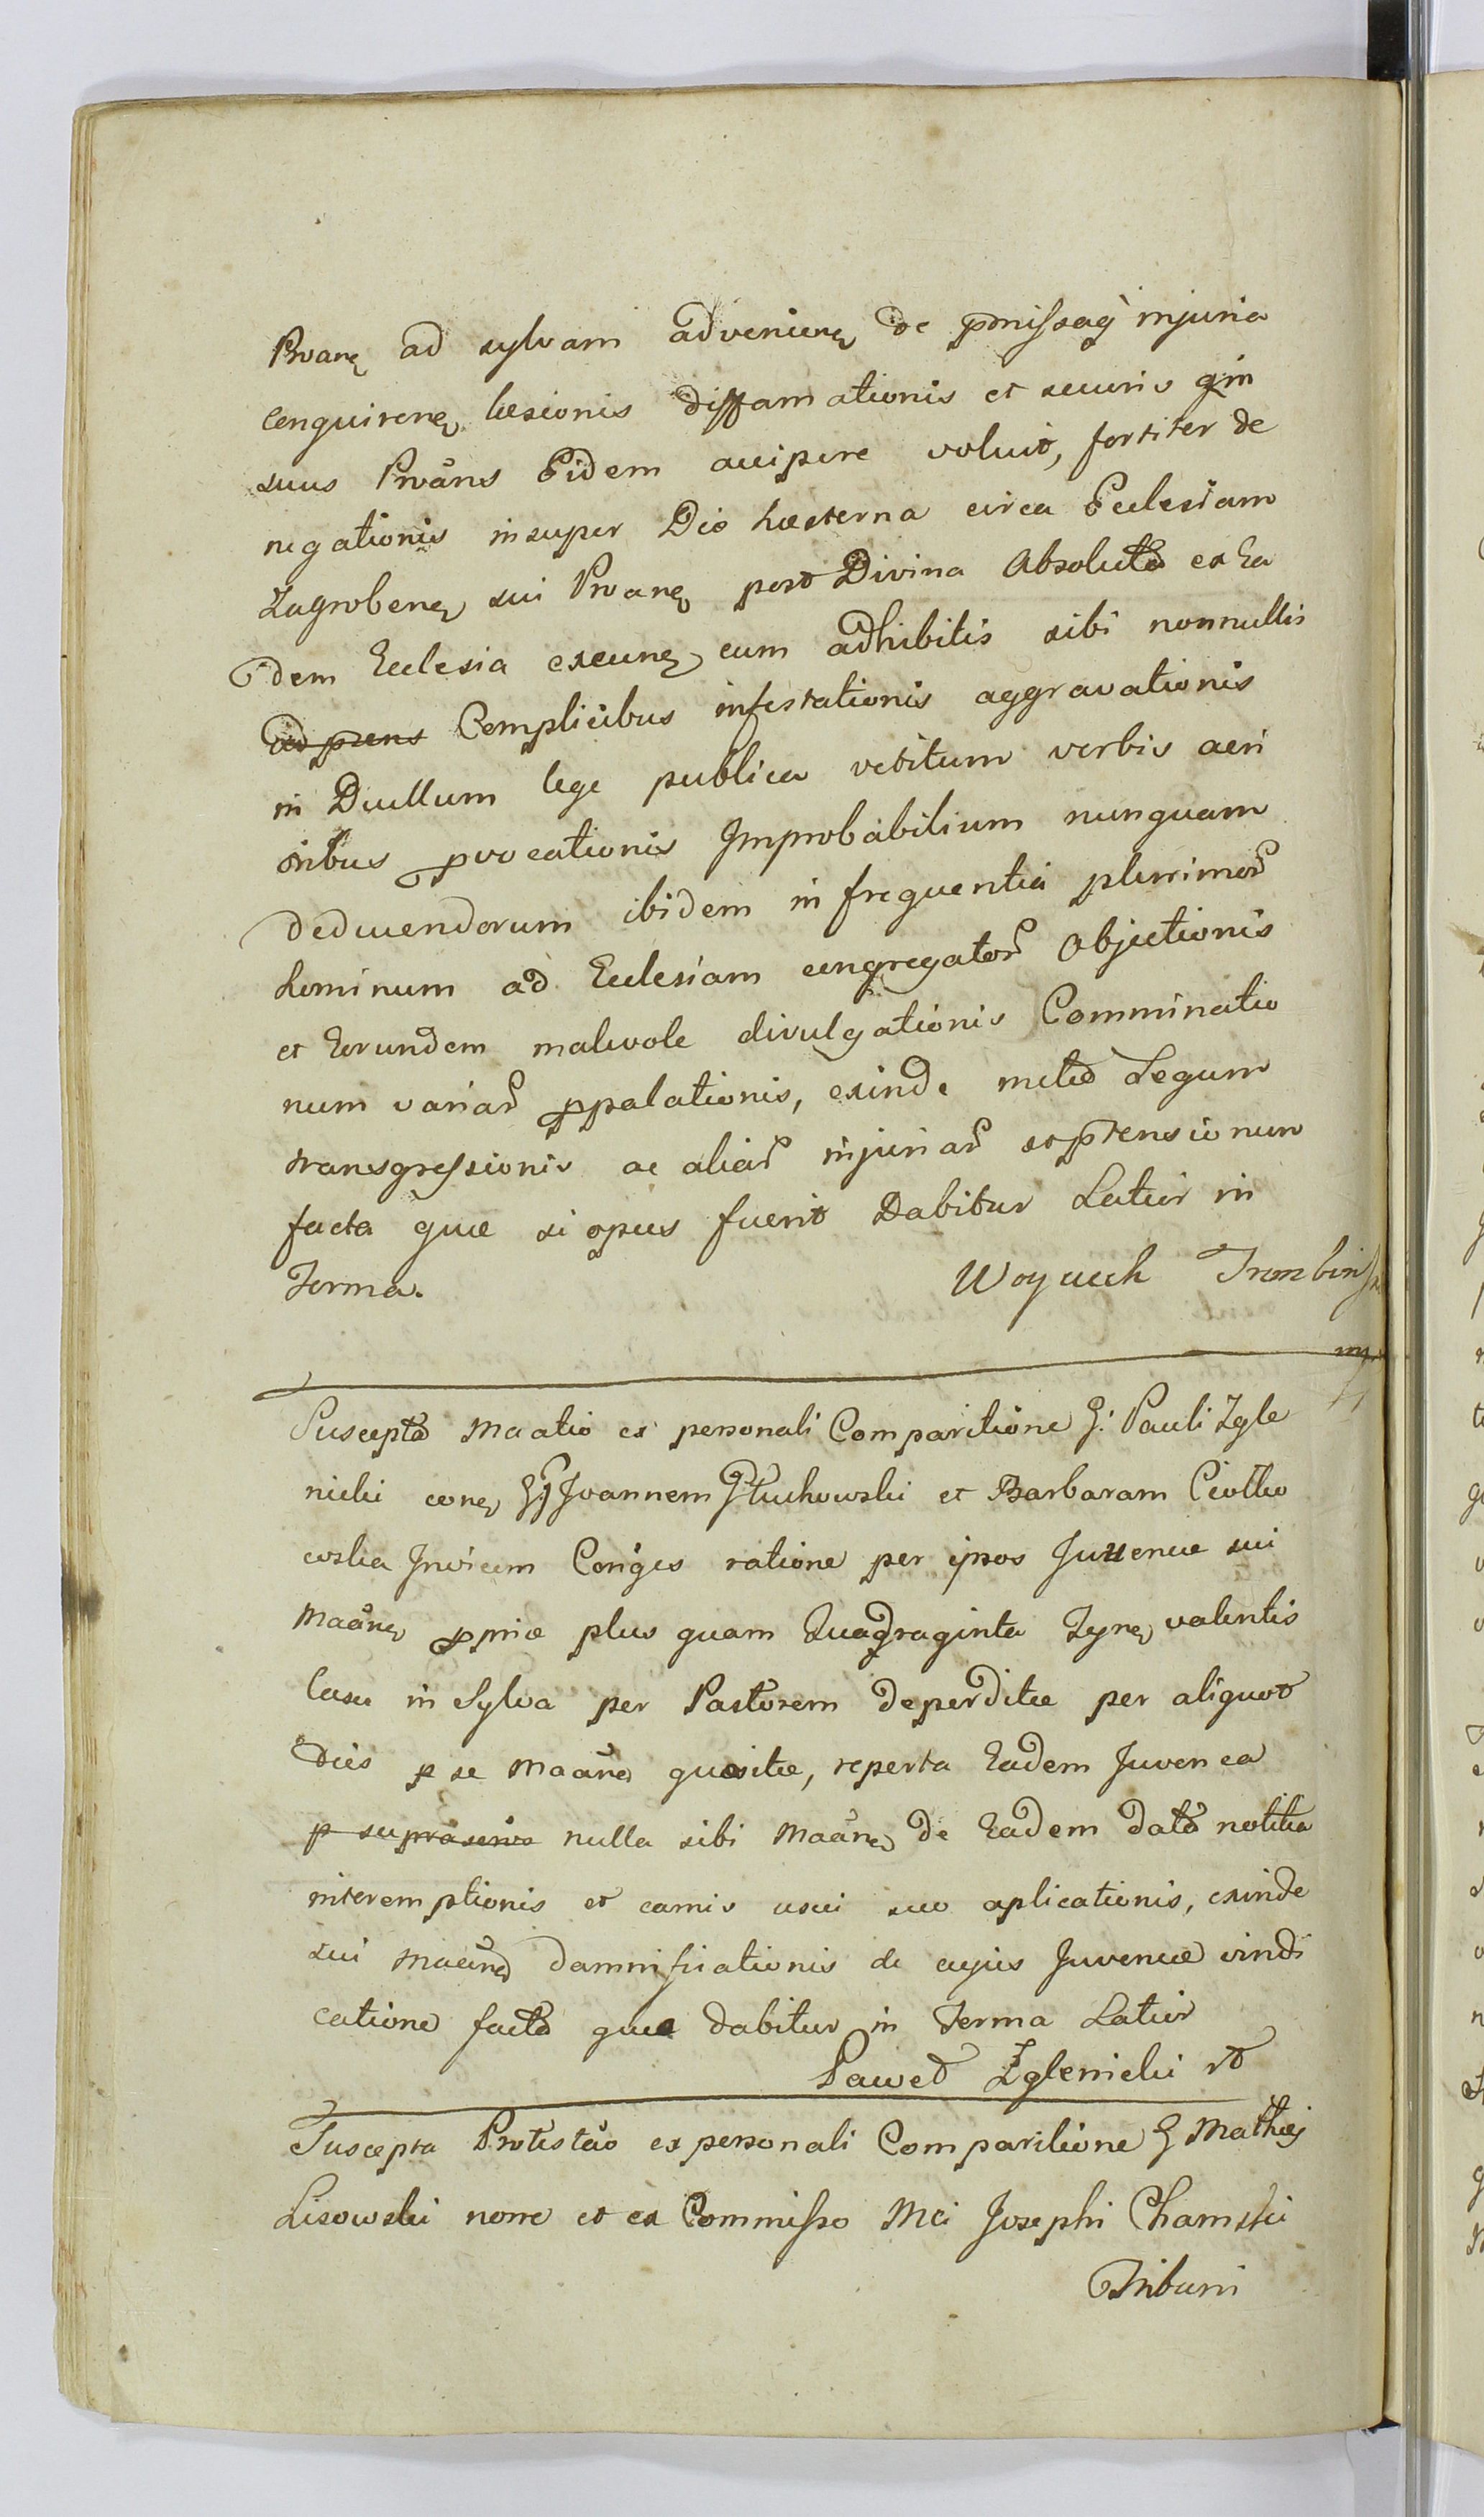 Prvane ad sylvam advenien de pmissaq injuria
Conquirene læsionis diffamationis et securis qm
suus Prvans Eidem accipere voluit, fortiter de
negationis insuper Die hæsterna circa Ecclesiam
Zagrobene sui Prvane post Divina Absoluta ex Ea
dem Ecclesia exeune cum adhibitis sibi nonnullis
Complicibus infestationis aggravationis
in Duellum lege publica vetitum verbis acri
oribus pvocationis Improbabilium nunquam
deducendorum ibidem in frequentia plurimor
hominum ad Ecclesiam congregator Objectionis
et Eorundem malevole divulgationis Comminatio
num variar ppalationis, exinde meted Legum
transgressionis ac aliar injuriar et ptensionum
facta quæ si opus fuerit Dabitur Latior in
Forma. Woyciech Trombinsk
mp
Suscepta Maatio ex personali Comparitione G: Pauli Zgle
nicki cone GG Joannem Głuchowski et Barbaram Ciołko
wska Invicem Conges ratione per ipsos Juvencæ sui
Maane ppriæ plus quam Quadraginta Tyne valentis
Casu in Sylva per Pastorem deperditæ per aliquot
dies p se Maane quæsitæ, reperta Eadem Juvenca
p suprascrios nulla sibi Maane de Eadem data notitia
interemptionis et carnis usui suo aplicationis, exinde
sui Maane damnificationis de cujus Juvencæ vindi
catione facta quæ dabitur in Forma Latior
Paweł Zglenicki
Suscepta Protestao ex personali Comparitione G Mathiæ
Lisowski nomre et ex Commisso Mci Josephi Chamski
Tribuni